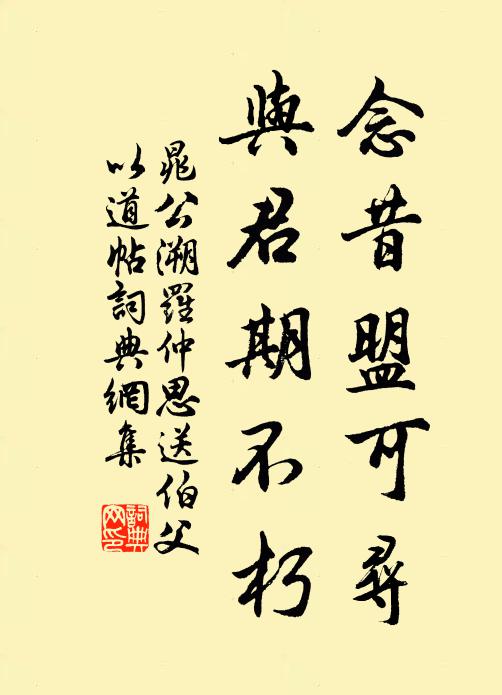 念昔盟可尋
與君期不朽
晁公溯羅仲思送伯父
以道帖詞典網集
詞典网印